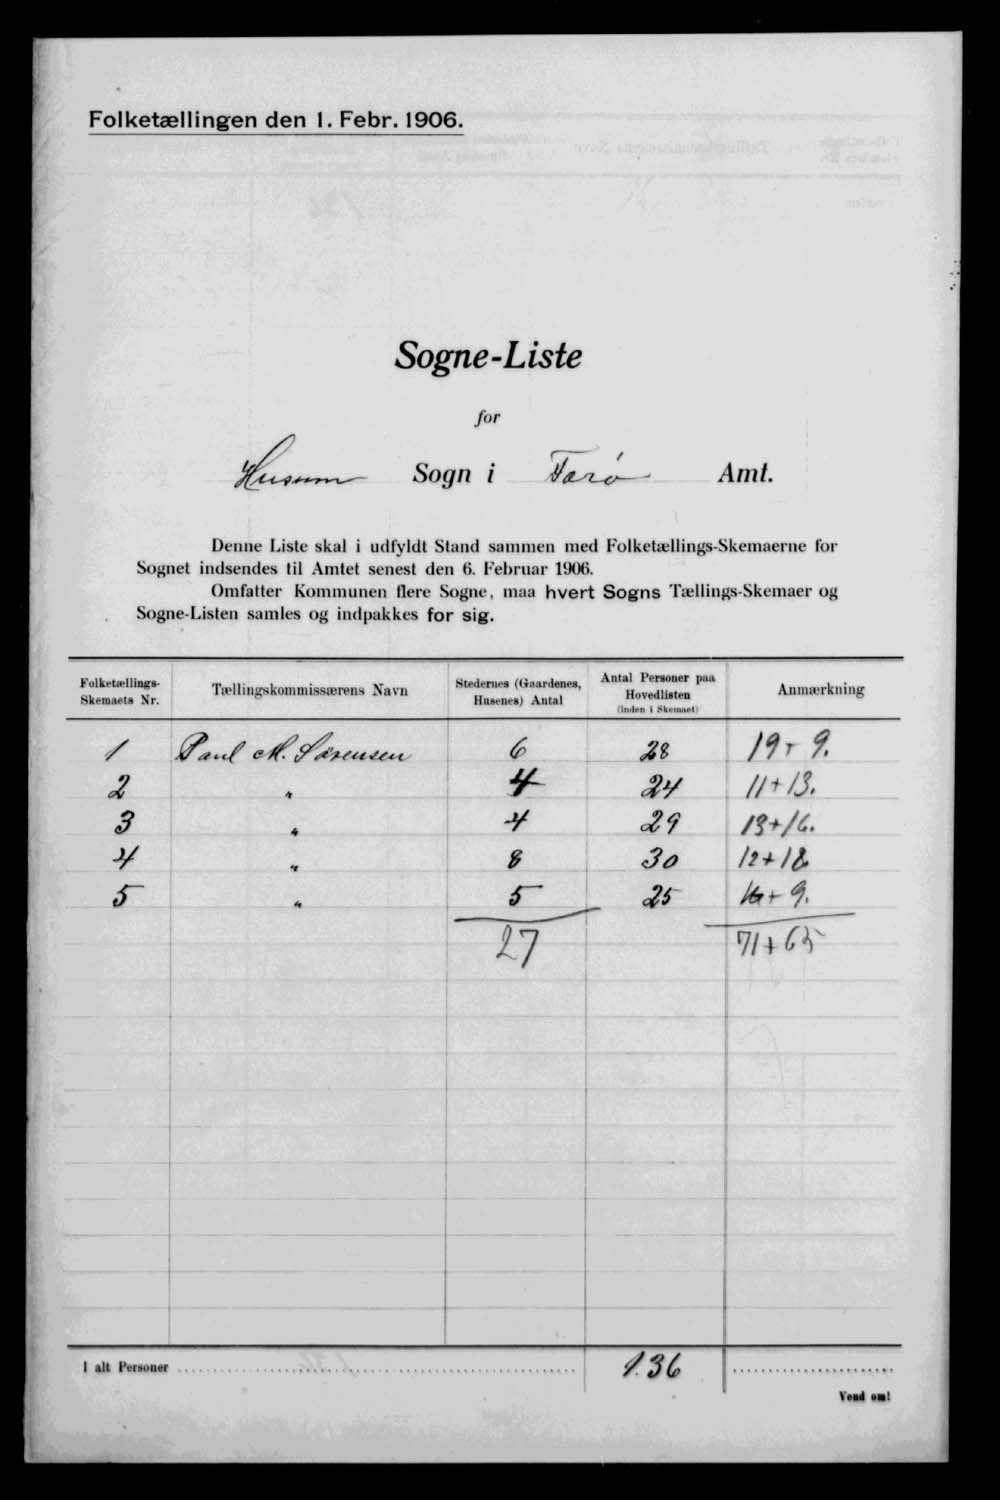 Folketællingen den 1. Febr. 1906.
Sogne-Liste
for
Husum Sogn i Færø Amt.
Denne Liste skal i udfyldt Stand sammen med Folketællings-Skemaerne for
Sognet indsendes til Amtet senest den 6. Februar 1906.
Omfatter Kommunen flere Sogne, maa hvert Sogns Tællings-Skemaer og
Sogne-Listen samles og indpakkes for sig.
Folketællings-Skemaets Nr. Tællingskommissærens Navn Stedernes (Gaardenes, Husenes) Antal Antal Personer paa Hovedlisten (inden i Skemaet) Anmærkning
1 Paul M. Sørensen 6 28 19+9.
2 " 4 24 11+13.
3 " 4 29 13+16.
4 " 8 30 12+18
5 " 5 25 16+9.
27 71+65
I alt Personer 136
Vend om!